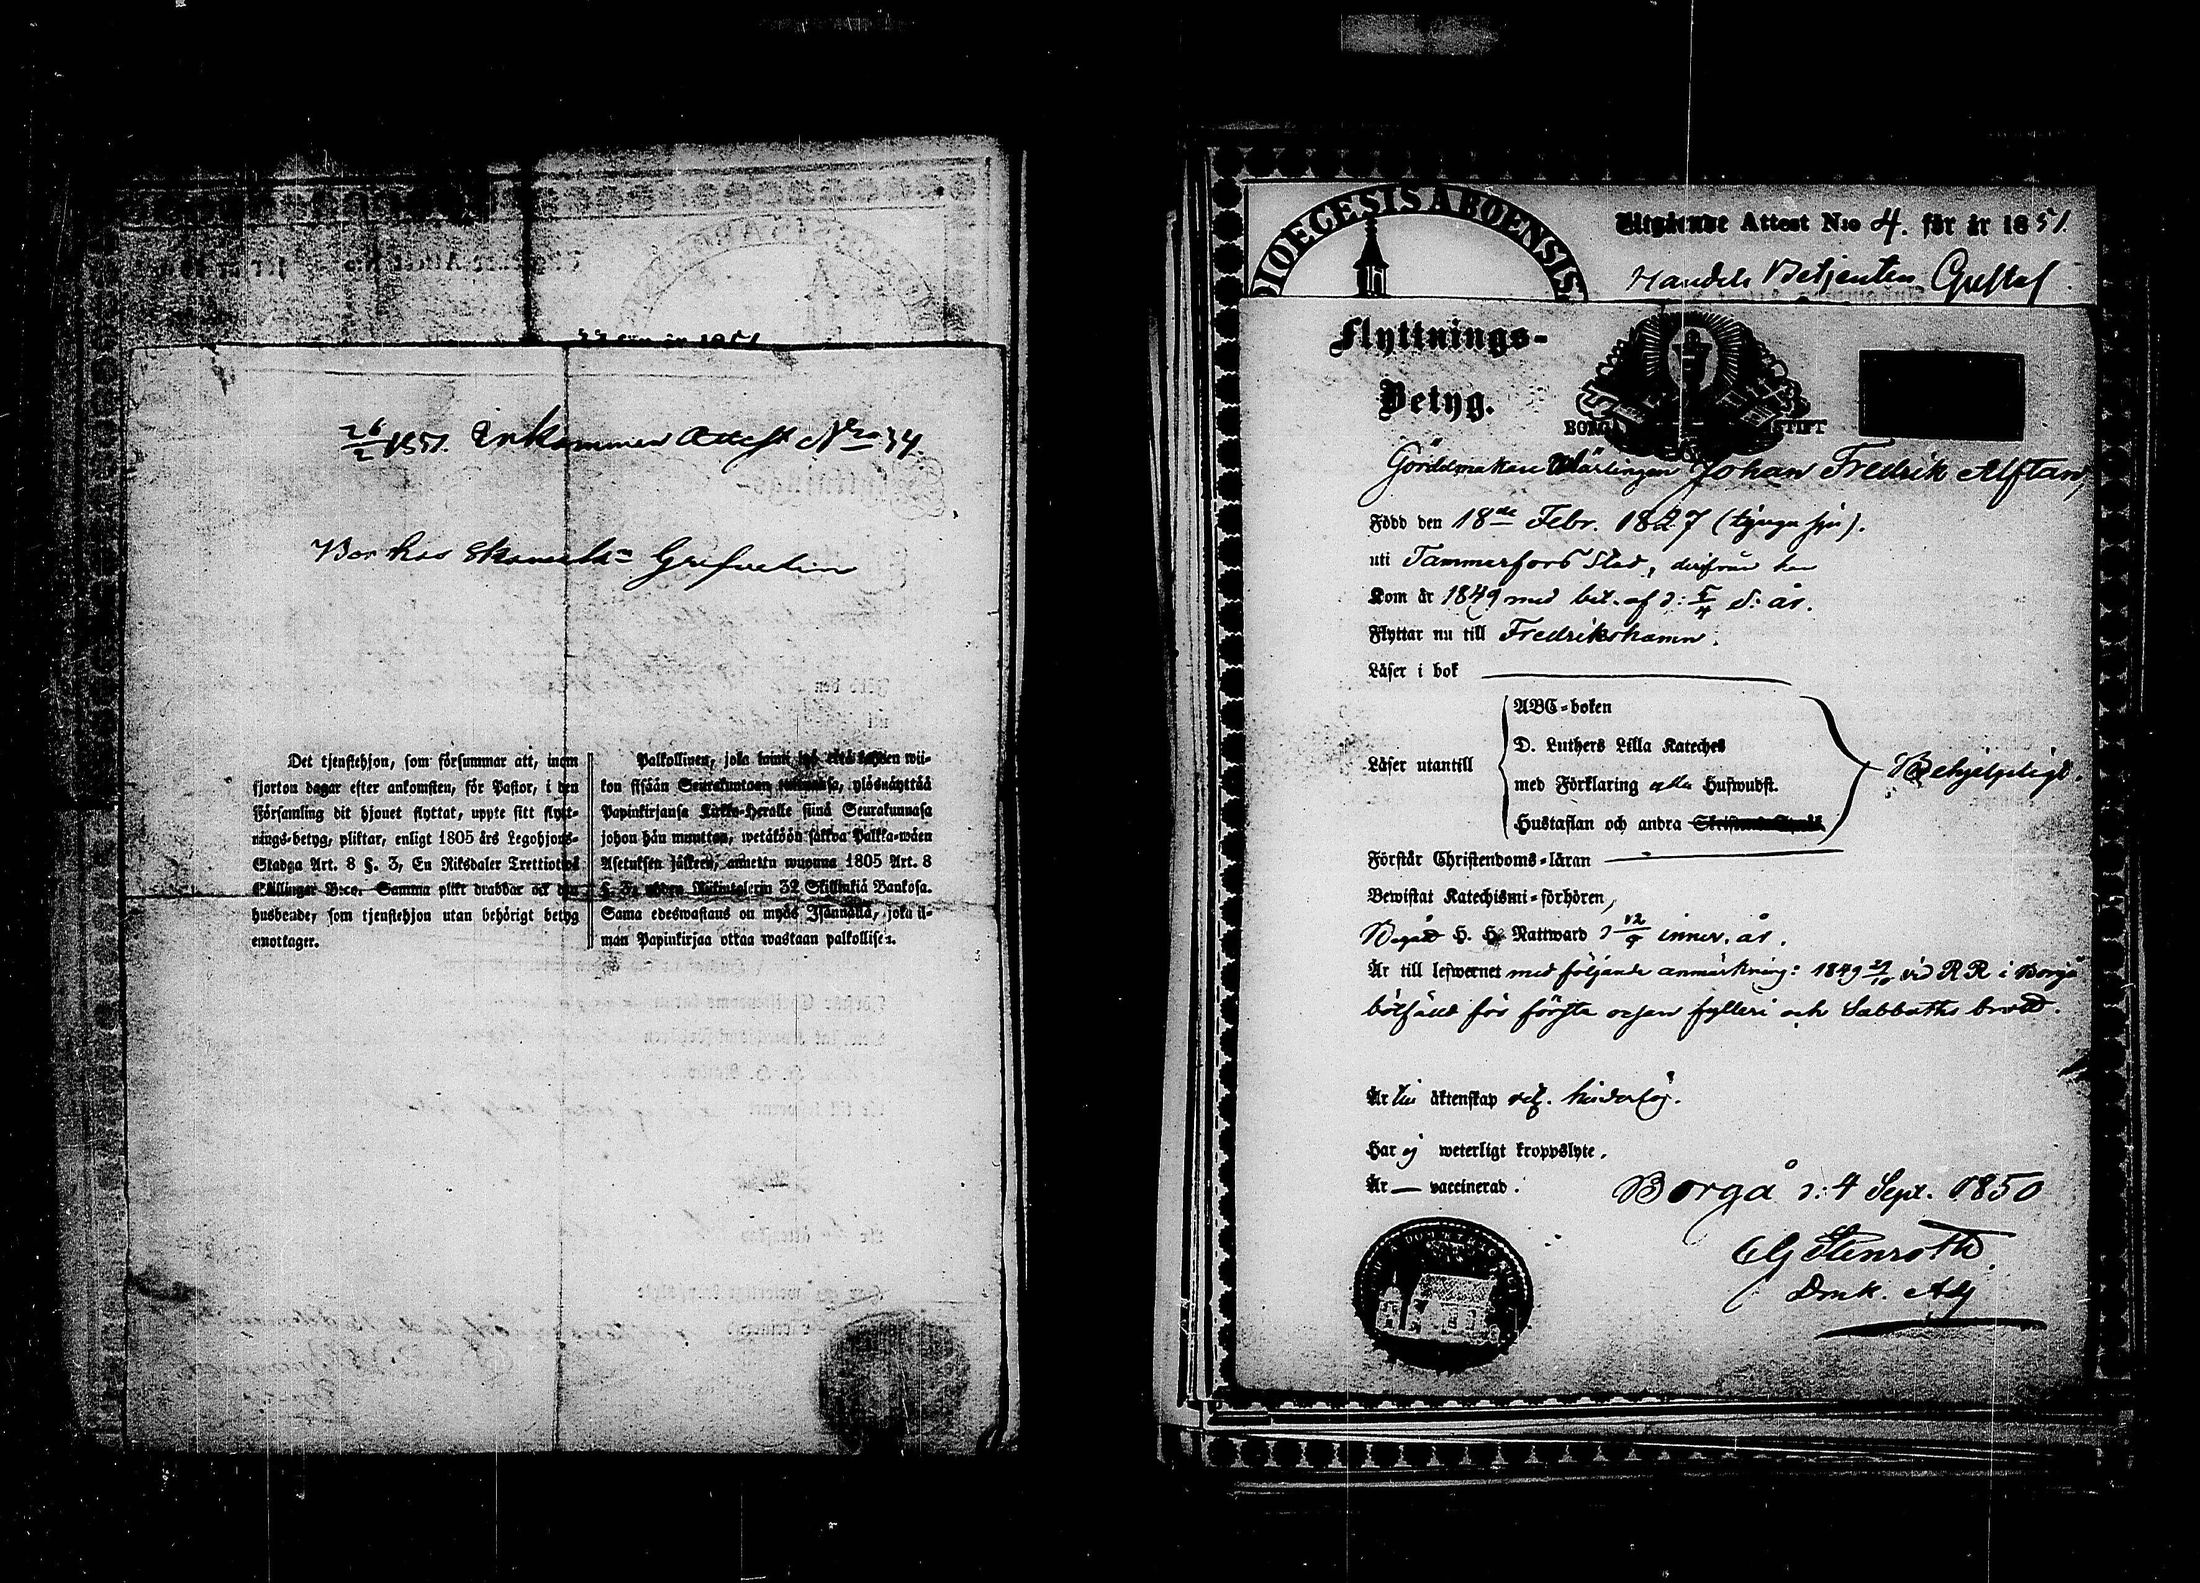 26/2 1851. Inkommen Attest No 34.
Det tjenstehjon, som försummar att, inom
fjorton dagar efter ankomsten, för Pastor, i den
Församling dit hjonet flyttat, uppte sitt flytt-
nings-betyg, pliktar, enligt 1805 års Legohjons-
Stadga Art. 8 §. 3, En Riksdaler Trettiotwå
Skillingar B:co. Samma plikt drabbar ock den
husbonde, som tjenstehjon utan behörigt betyg
emottager.
Palkollinen, joka wii-
kon sisään Seurakuntaan ylösnäyttää
Papinkirjansa Kirkko-Heralle siinä Seurakunnasa
johon hän muuttaa, wetäköön sakkoa Palkka-wäen
Asetuksen jälkeen, annettu wuonna 1805 Art. 8
§. 3, yhden Riikintalerin 32 Skillinkiä Bankosa.
Sama edeswastaus on myös Isännällä, joka il-
man Papinkirjaa ottaa wastaan palkollisen.
DIOECESIS ABOENSIS
Utgående Attest N:o 4. för år 1851.
Handels Betjenten Gustaf
Flyttnings-
Betyg.
BORGÅ STIFT
Gördelmakare Lärlingen Johan Fredrik Alftan,
Född den 18de Febr. 1827 (tjugu sju).
uti Tammerfors Stad, derifrån han
Kom år 1849 med bet. af d: 5/4 s: år.
Flyttar nu till Fredrikshamn.
Läser i bok
Läser utantill
ABC-boken
D. Luthers Lilla Kateches
med Förklaring alla Hufwudst.
Hustaflan och andra
Behjelpligt.
Förstår Christendoms-läran
Bewistat Katechismi-förhören,
Begått H. H. Nattward d 12/9 inner. år.
Är till lefwernet med följande anmärkning: 1849 29/10 vid RR i Borgå
bötfälld för första resan fylleri och Sabbaths brott.
Är till äktenskap
Har ej weterligt kroppslyte.
Är — vaccinerad.
Borgå d: 4 Sept. 1850
CG Stenroth.
Dmk. Adj